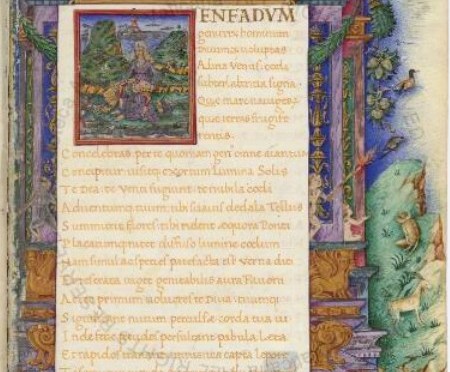 ENEADVM
genitrix hominum
Diuumq uoluptas
Alma Venus coeli
subter labentia signa
Quae mare nauigerum
quae terras frugife
rentis.
Concelebras. per te quoniam genus omne animantum
Concipitur uisitq exortum lumina Solis
Te Dea te Venti fugiunt te nubila coeli
Aduentumq tuum, tibi suauis dedala Tellus
Summittit flores tibi rident aequora Ponti
Placatumq nitet diffuso lumine coelum
Nam simul ac species patefacta est verna diei
Et reserata uiget genitabilis aura Fauoni
Aeriae primum uolucres te Diua tuumq
Significant initum perculsae corda tua ui
Inde ferae pecudes persultant pabula Laeta
Et rapidos tranant amnis ita capta Lepore